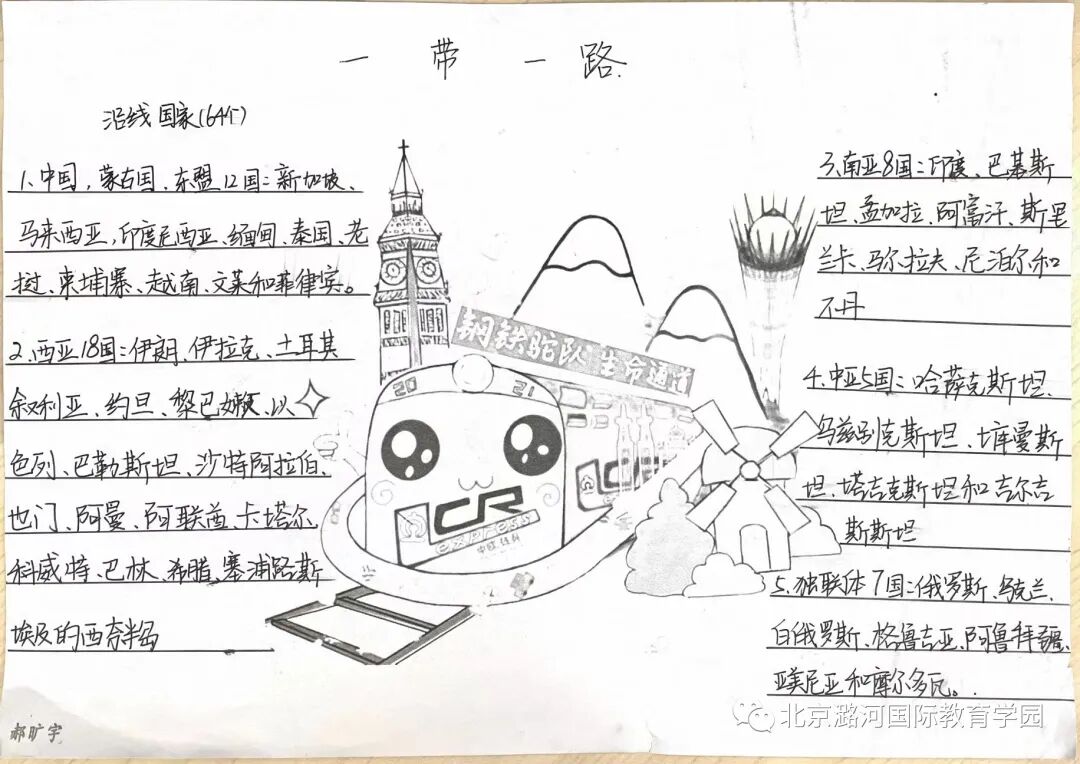 一带一路
沿线国家(64个)
1、中国，蒙古国、东盟12国：新加坡、
马来西亚，印度尼西亚、缅甸、泰国、老
挝、柬埔寨、越南、文莱和菲律宾。
2、西亚18国：伊朗、伊拉克、土耳其
叙利亚、约旦、黎巴嫩、以
色列、巴勒斯坦、沙特阿拉伯、
也门、阿曼、阿联酋、卡塔尔,
科威特、巴林、希腊、塞浦路斯
埃及的西奈半岛
郝旷宇
钢铁驼队 生命通道
20 21
CR
express
中欧班列
3、南亚8国：印度、巴基斯
坦、孟加拉、阿富汗、斯里
兰卡、马尔拉夫、尼泊尔和
不丹
4、中亚5国：哈萨克斯坦、
乌兹别克斯坦、土库曼斯
坦、塔吉克斯坦和吉尔吉
斯斯坦
5、独联体7国：俄罗斯、乌克兰、
白俄罗斯、格鲁吉亚、阿鲁拜疆、
亚美尼亚和摩尔多瓦。
北京潞河国际教育学园